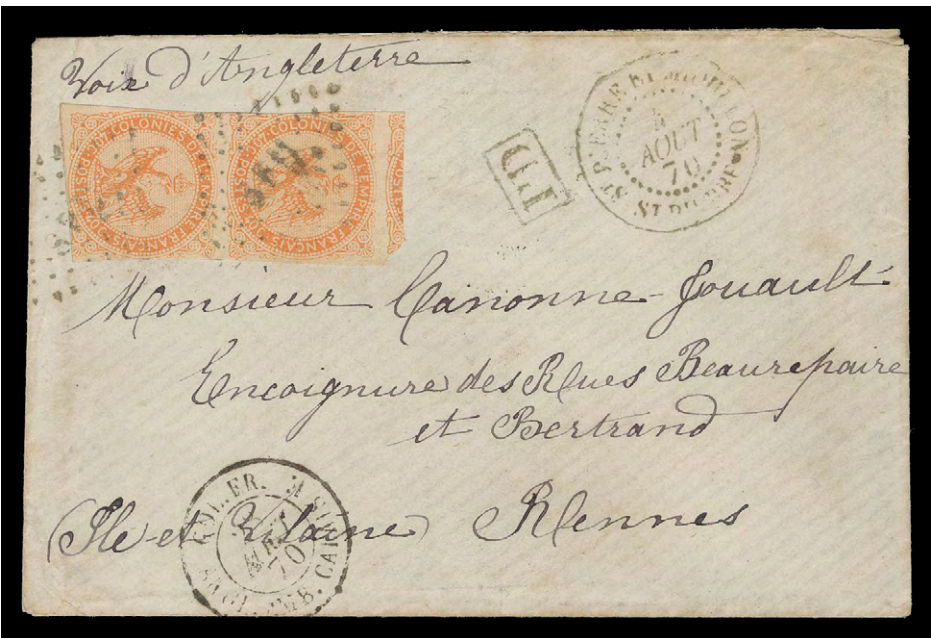 Voie d'Angleterre
COLONIES DE L'EMPIRE FRANÇAIS
COLONIES DE L'EMPIRE FRANÇAIS
PD
ST PIERRE ET MIQUELON
AOUT
70
ST PIERRE
Monsieur Canonne-Jouault
Encoignure des Rues Beaurepaire
et Bertrand
(Ile-et-Vilaine) Rennes
ANGL.
70